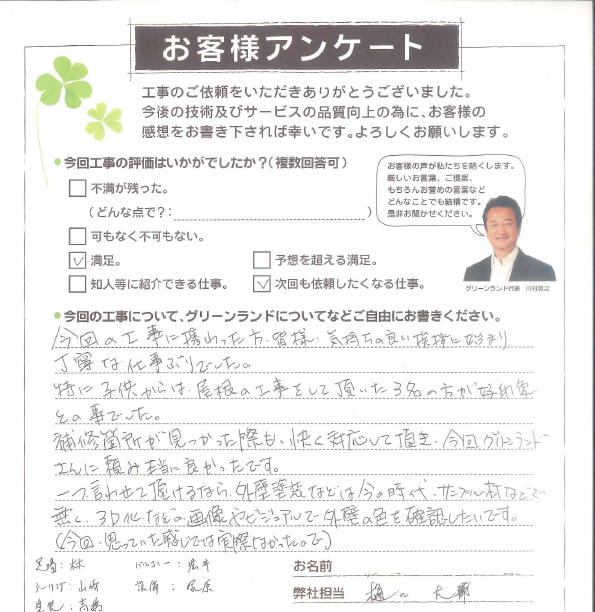 お客様アンケート
工事のご依頼をいただきありがとうございました。
今後の技術及びサービスの品質向上の為に、お客様の
感想をお書き下されば幸いです。よろしくお願いします。
今回工事の評価はいかがでしたか？(複数回答可)
不満が残った。
(どんな点で?: )
可もなく不可もない。
満足。
予想を超える満足。
知人等に紹介できる仕事。
次回も依頼したくなる仕事。
お客様の声が私たちを熱くします。
厳しいお言葉、ご提案、
もちろんお誉めの言葉など
どんなことでも結構です。
是非お聞かせください。
グリーンランド代表 川村英之
今回の工事について、グリーンランドについてなどご自由にお書きください。
今回の工事に携わった方、皆様、気持ちの良い挨拶に始まり
丁寧な仕事ぶりでした。
特に子供からは、屋根の工事をして頂いた3名の方が好印象
との事でした。
補修箇所が見つかった際も、快く対応して頂き、今回グリーンランド
さんに頼み本当に良かったです。
一つ言わせて頂けるなら、外壁塗装などは今の時代、サンプル材などで
無く、3D化などの画像やビジュアルで外壁の色を確認したいです。
(今回、思っていた感じでは実際なかったので)
足場：林
シーリング：山崎
お名前
弊社担当 樋口